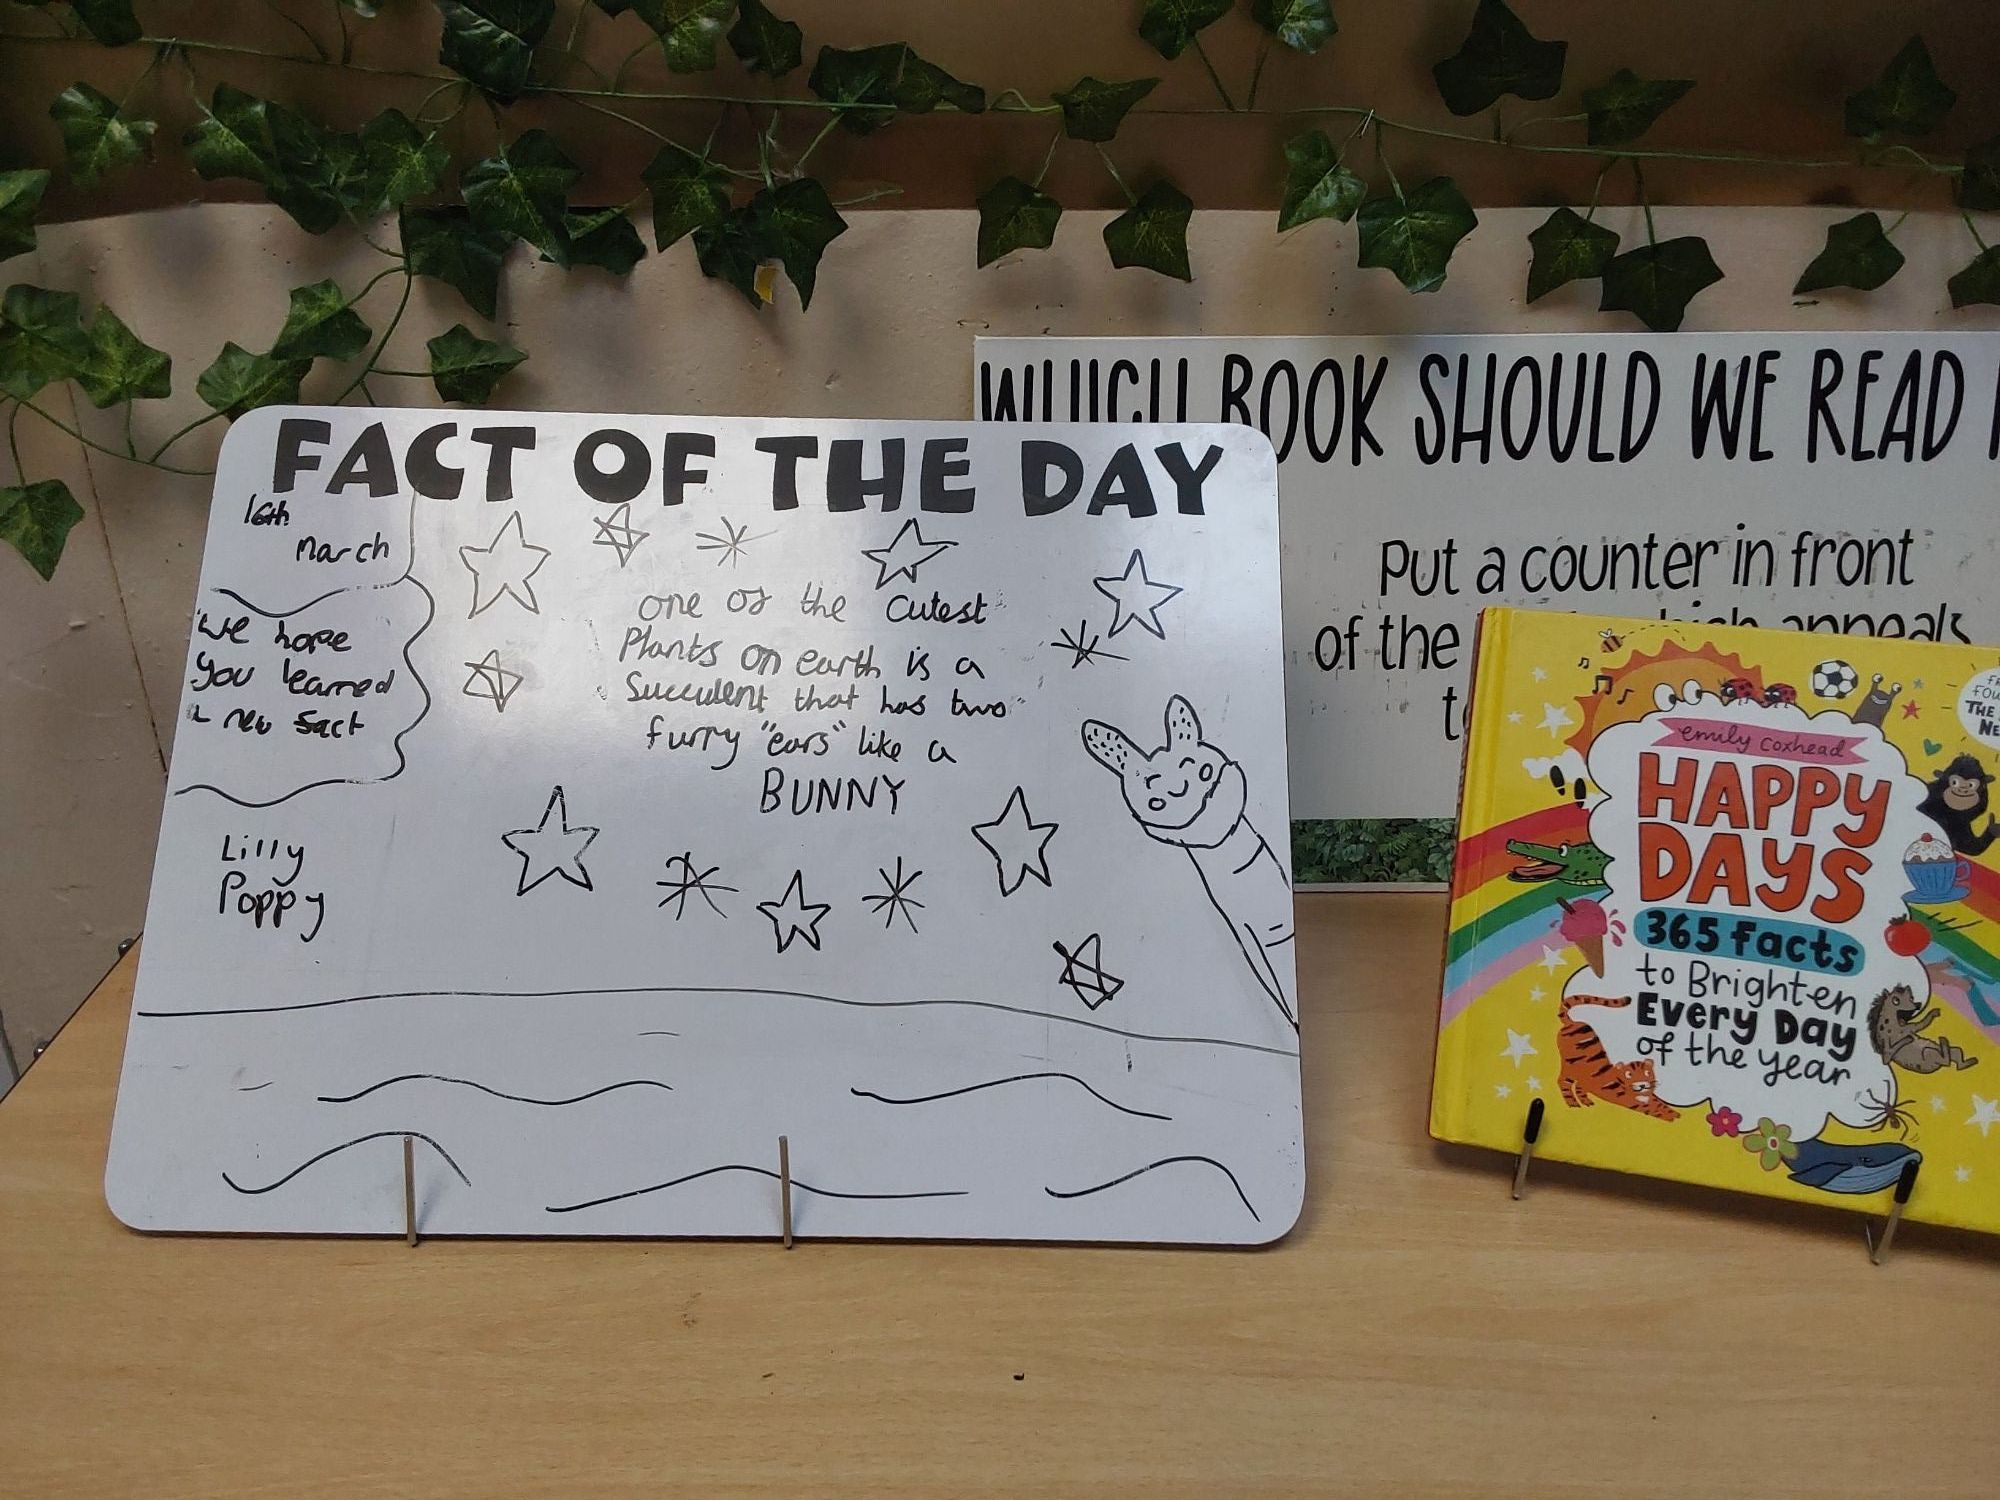 FACT OF THE DAY
16th
March
"We hope
You learned
a new fact
Lilly
Poppy
one of the cutest
Plants on earth is a
Succulent that has two
furry "ears" like a
BUNNY
WHICH BOOK SHOULD WE READ
Put a counter in front
of the
which appeals
emily coxhead
HAPPY
DAYS
365 facts
to Brighten
Every Day
of the year
THE